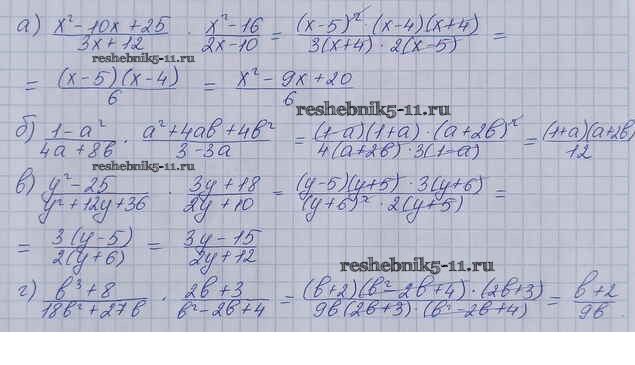 а) (x²-10x+25)/(3x+12) · (x²-16)/(2x-10) = ((x-5)²·(x-4)(x+4))/(3(x+4)·2(x-5)) =
reshebnik5-11.ru
= ((x-5)(x-4))/6 = (x²-9x+20)/6
reshebnik5-11.ru
б) (1-a²)/(4a+8b) · (a²+4ab+4b²)/(3-3a) = ((1-a)(1+a)·(a+2b)²)/(4(a+2b)·3(1-a)) = ((1+a)(a+2b))/12
reshebnik5-11.ru
в) (y²-25)/(y²+12y+36) · (3y+18)/(2y+10) = ((y-5)(y+5)·3(y+6))/((y+6)²·2(y+5)) =
= (3(y-5))/(2(y+6)) = (3y-15)/(2y+12)
reshebnik5-11.ru
г) (b³+8)/(18b²+27b) · (2b+3)/(b²-2b+4) = ((b+2)(b²-2b+4)·(2b+3))/(9b(2b+3)·(b²-2b+4)) = (b+2)/(9b).